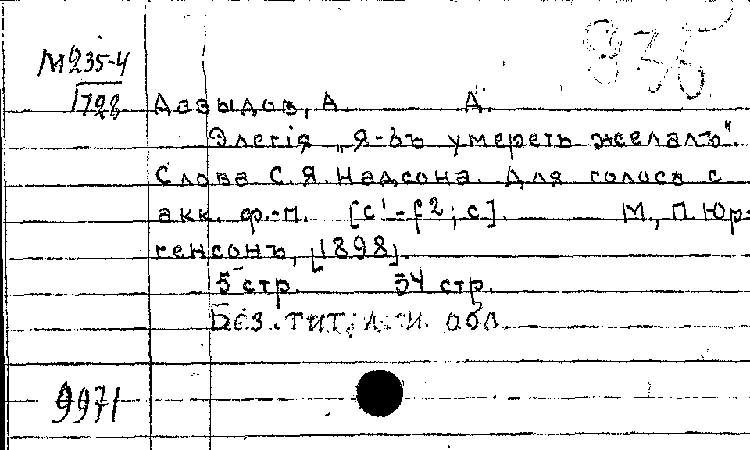 М235-4
728
935
Давыдов, А. Д.
Элегiя „Я-бъ умереть желалъ".
Слова С.Я. Надсона. Для голоса с
акк. ф.-п. [c¹-f2; c]. М., П. Юр-
генсонъ, [1898].
5 стр. 34 стр.
Без. тит. л. и обл.
9971